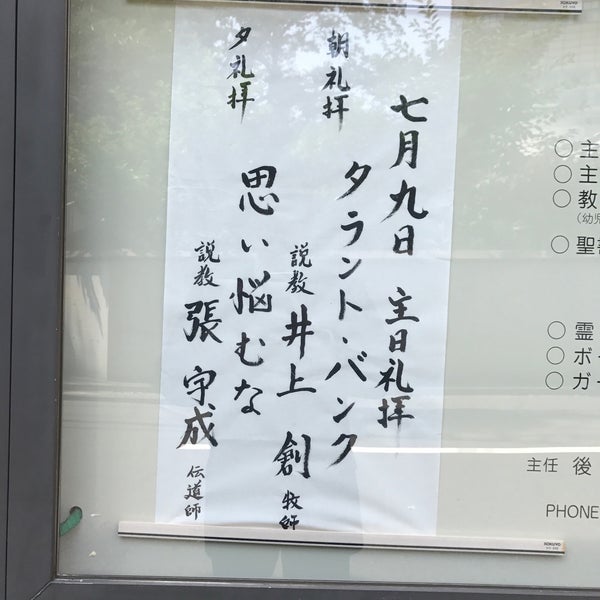 七月九日 主日礼拝
朝礼拝 タラント・バンク
説教 井上 創 牧師
夕礼拝 思い悩むな
説教 張 宇成 伝道師
○主
○主
○教
(幼児
○聖書
○霊
○ボー
○ガー
主任 後
PHONE
KOKUYO
KOKUYO